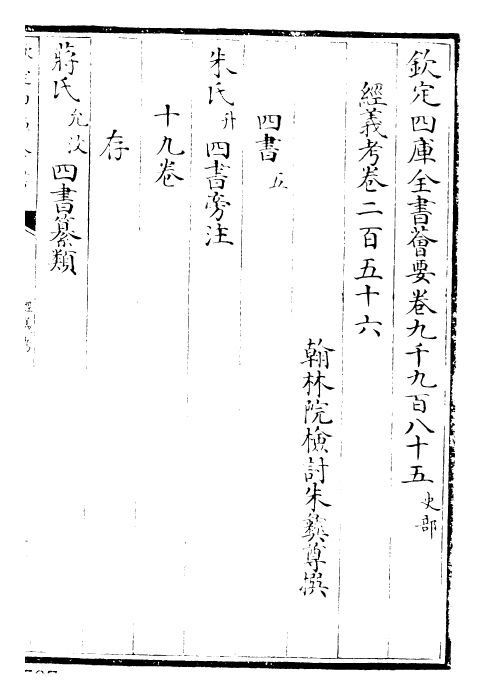 欽定四庫全書薈要卷九千九百八十五 史部
經義考卷二百五十六
翰林院檢討朱彝尊撰
四書 五
朱氏 升 四書旁注
十九卷
存
蔣氏 允汶 四書纂類